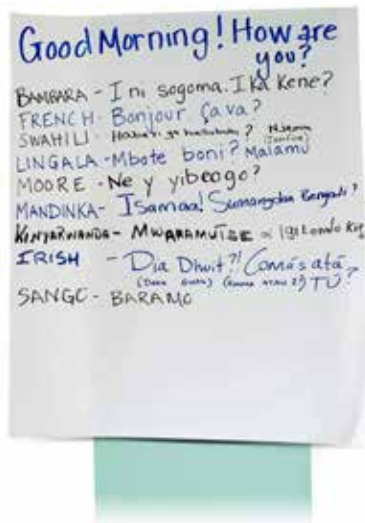 Good Morning! How are
you?
BAMBARA - I ni sogoma. I Ka Kene?
FRENCH - Bonjour Ça va?
SWAHILI -
LINGALA - Mbote boni? Malamu
MOORE - Ne y yibeogo?
MANDINKA - Isamaa!
KINYARWANDA - MWARAMUTSE
IRISH - Dia Dhuit?! Conas atá
TÚ?
SANGO - BARAMO